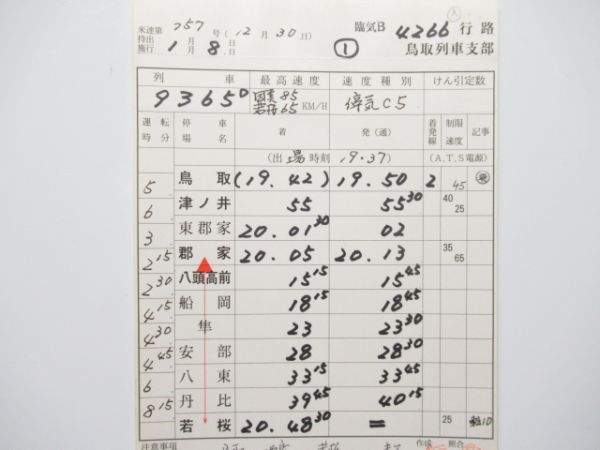 米達第757号(12月30日)
待出
施行 1月8日
臨気B 4266行路
① 鳥取列車支部
列 車 最高速度 速度種別 けん引定数
9365D 因美85 若桜65 KM/H 停気C5
運転時分 停車場名 着 発(通) 着発線 制限速度 記事
(出場時刻 19.37) (A,T,S電源)
5 鳥取 (19.42) 19.50 2 45
6 津ノ井 55 55 30 40 25
3 東郡家 20.01 30 02
2 15 郡家 20.05 20.13 35 65
2 30 八頭高前 15 15 15 45
4 15 船岡 18 15 18 45
4 30 隼 23 23 30
4 45 安部 28 28 30
6 八東 33 15 33 45
8 15 丹比 39 45 40 15
若桜 20.48 30 = 25
注意事項 作成 照合